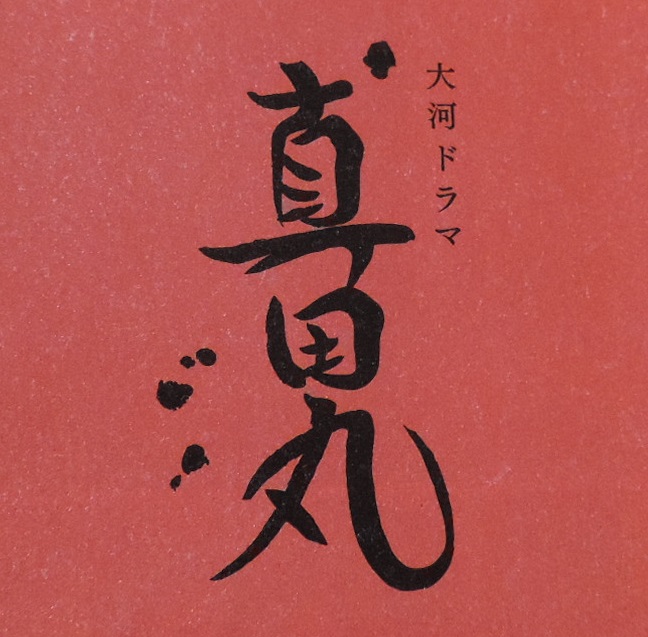 大河ドラマ
真田丸